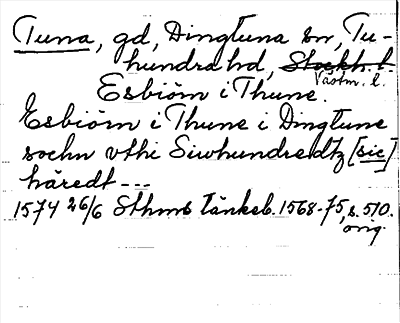 Tuna, gd, Dingtuna sn, Tu-
hundra hd, Stockh. l.
Västm. l.
Esbiörn i Thune.
Esbiörn i Thune i Dingtune
sochn vthi Siwhundredtz [sic]
häredt ---
1574 26/6 Sthms tänkeb. 1568-75, s. 510.
orig.